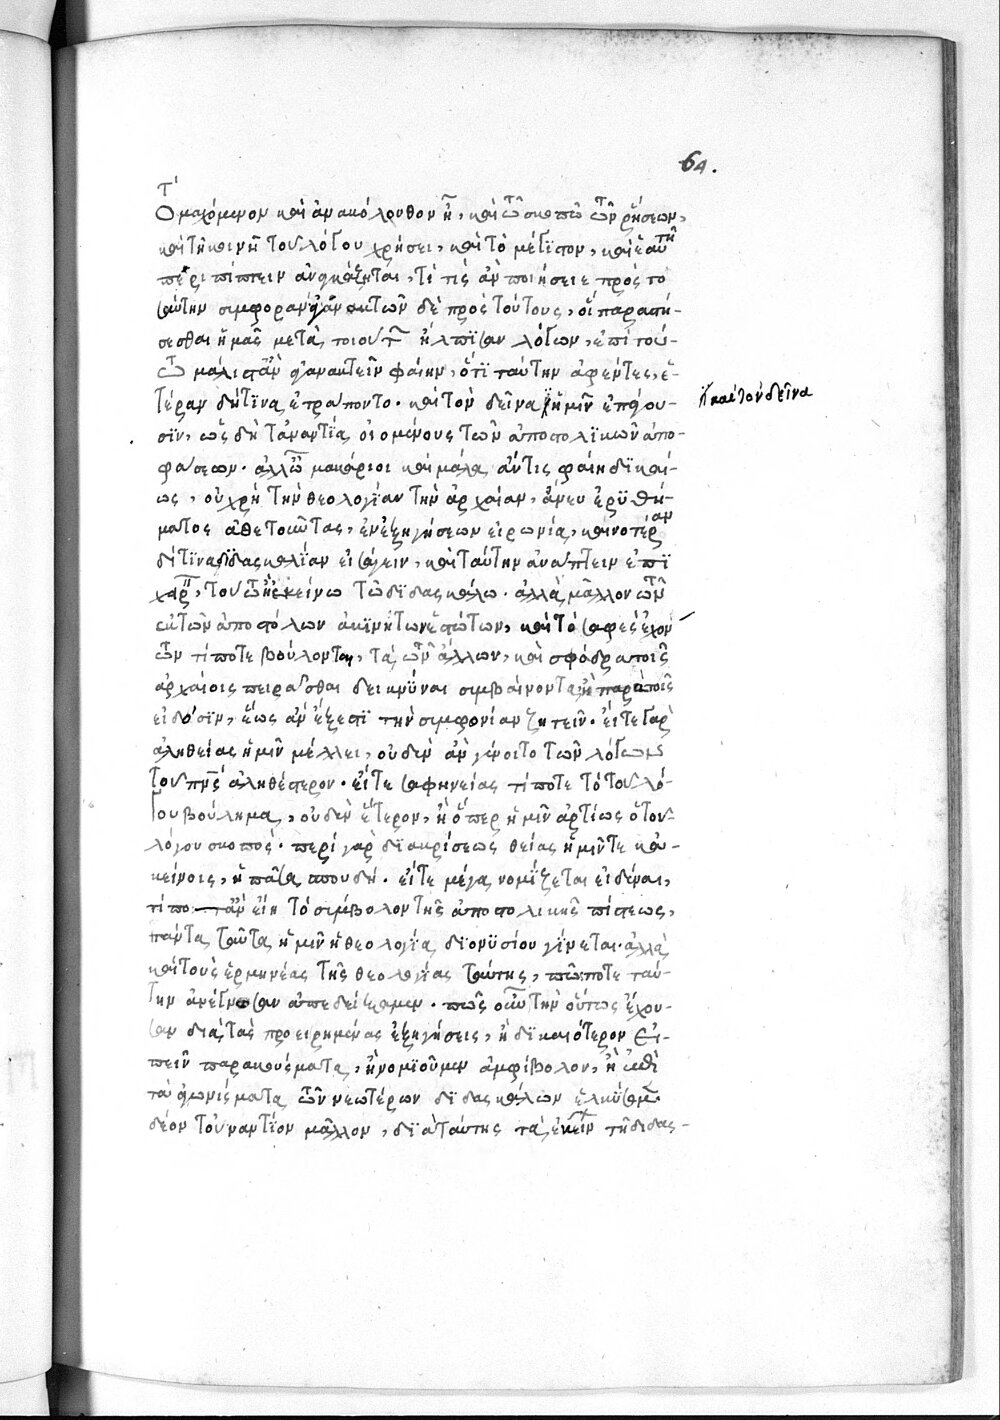 64.
μαχόμενον καὶ ἀνακόλουθον ᾖ, καὶ τῶ σκοπῶ τῶν ῥήσεων,
καὶ τῆ κοινῆ τοῦ λόγου χρήσει, καὶ τὸ μέγιστον, καὶ ἑαυτῆ
περιπίπτειν ἀναγκάζηται, τί τίς ἂν ποιήσειε πρὸς το
σαύτην συμφοράν; τῶν δὲ πρὸς τούτους, οἷ παραστή-
σεσθαι ἡμᾶς μετὰ τοιούτων ἤλπισαν λόγων, ἐπὶ τού-
τω μάλιστ' ἂν ἀγανακτεῖν φαίην, ὅτι ταύτην ἀφέντες, ἑ-
τέραν δή τινα ἐτράποντο. καὶ τὸν δεῖνα ἡμῖν ἐπάγου-
ἢ καὶ τὸν δεῖνα
σιν, ὡς δὴ τἀναντία οἰομένους τῶν ἀποστολικῶν ἀπο-
φάσεων. ἀλλ' ὦ μακάριοι καὶ μάλα ἄν τις φαίη δικαί-
ως, οὐ χρὴ τὴν θεολογίαν τὴν ἀρχαίαν, ἄνευ ἐρυθή-
ματος ἀθετοῦντας, ἐν ἐξηγήσεων εἰρωνία, καινοτέραν
δή τινα διδασκαλίαν εἰσάγειν, καὶ ταύτην ἀνάπτειν ἐπὶ
τούτω ἢ ἐκείνω τῶ διδασκάλω. ἀλλὰ μᾶλλον τῶν
ἐκ τῶν ἀποστόλων ἀκινήτων ἑστώτων, καὶ τὸ σαφὲς ἐχόν
των τί ποτε βούλονται, τὰ τῶν ἄλλων, καὶ σφόδρα τοῖς
ἀρχαίοις πειρᾶσθαι δεικνύναι συμβαίνοντα, ἢ παρὰ τοῖς
εἰδόσιν, ἕως ἂν ἔξεστι τὴν συμφωνίαν ζητεῖν. εἴτε γὰρ
ἀληθείας ἡμῖν μέλλει, οὐδὲν ἂν γένοιτο τῶν λόγων
τοῦ πνς ἀληθέστερον. εἴτε σαφηνείας τί ποτε τὸ τοῦ λό-
γου βούλημα, οὐδὲν ἕτερον, ἢ ὅπερ ἡμῖν ἀρτίως ὁ τοῦ
λόγου σκοπός. περὶ γὰρ διακρίσεως θείας ἡμῖν τε κἀ-
κείνοις, ἡ πᾶσα σπουδή. εἴτε μέγα νομίζεται εἰδέναι,
τί ποτ' ἂν εἴη τὸ σύμβολον τῆς ἀποστολικῆς πίστεως,
πάντα ταῦτα ἡμῖν ἡ θεολογία διονυσίου γίνεται. ἀλλὰ
καὶ τοὺς ἑρμηνέας τῆς θεολογίας ταύτης, πῶς ποτε ταύ-
την ἀνέγνωσαν ἀπεδείξαμεν. πῶς οὖν τὴν οὕτως ἔχου-
σαν διὰ τὰς προειρημένας ἐξηγήσεις, ἢ δικαιότερον εἰ-
πεῖν παρακούσματα, ἢ νομιοῦμεν ἀμφίβολον, ἢ
τῶν νεωτέρων διδασκάλων
δέον τοὐναντίον μᾶλλον, διὰ ταύτης τὰ ἐκείνων τῆ διδασ-